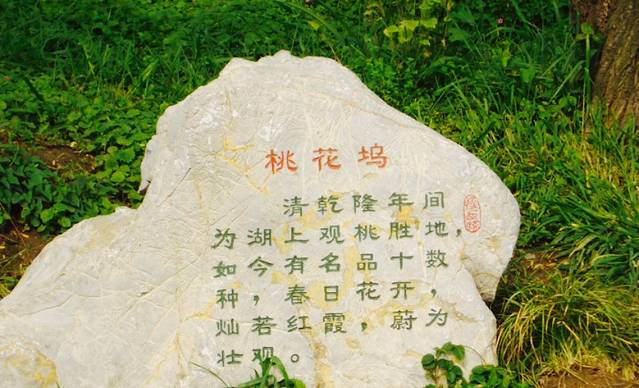 桃花坞
清乾隆年间
为湖上观桃胜地，
如今有名品十数
种，春日花开，
灿若红霞，蔚为
壮观。